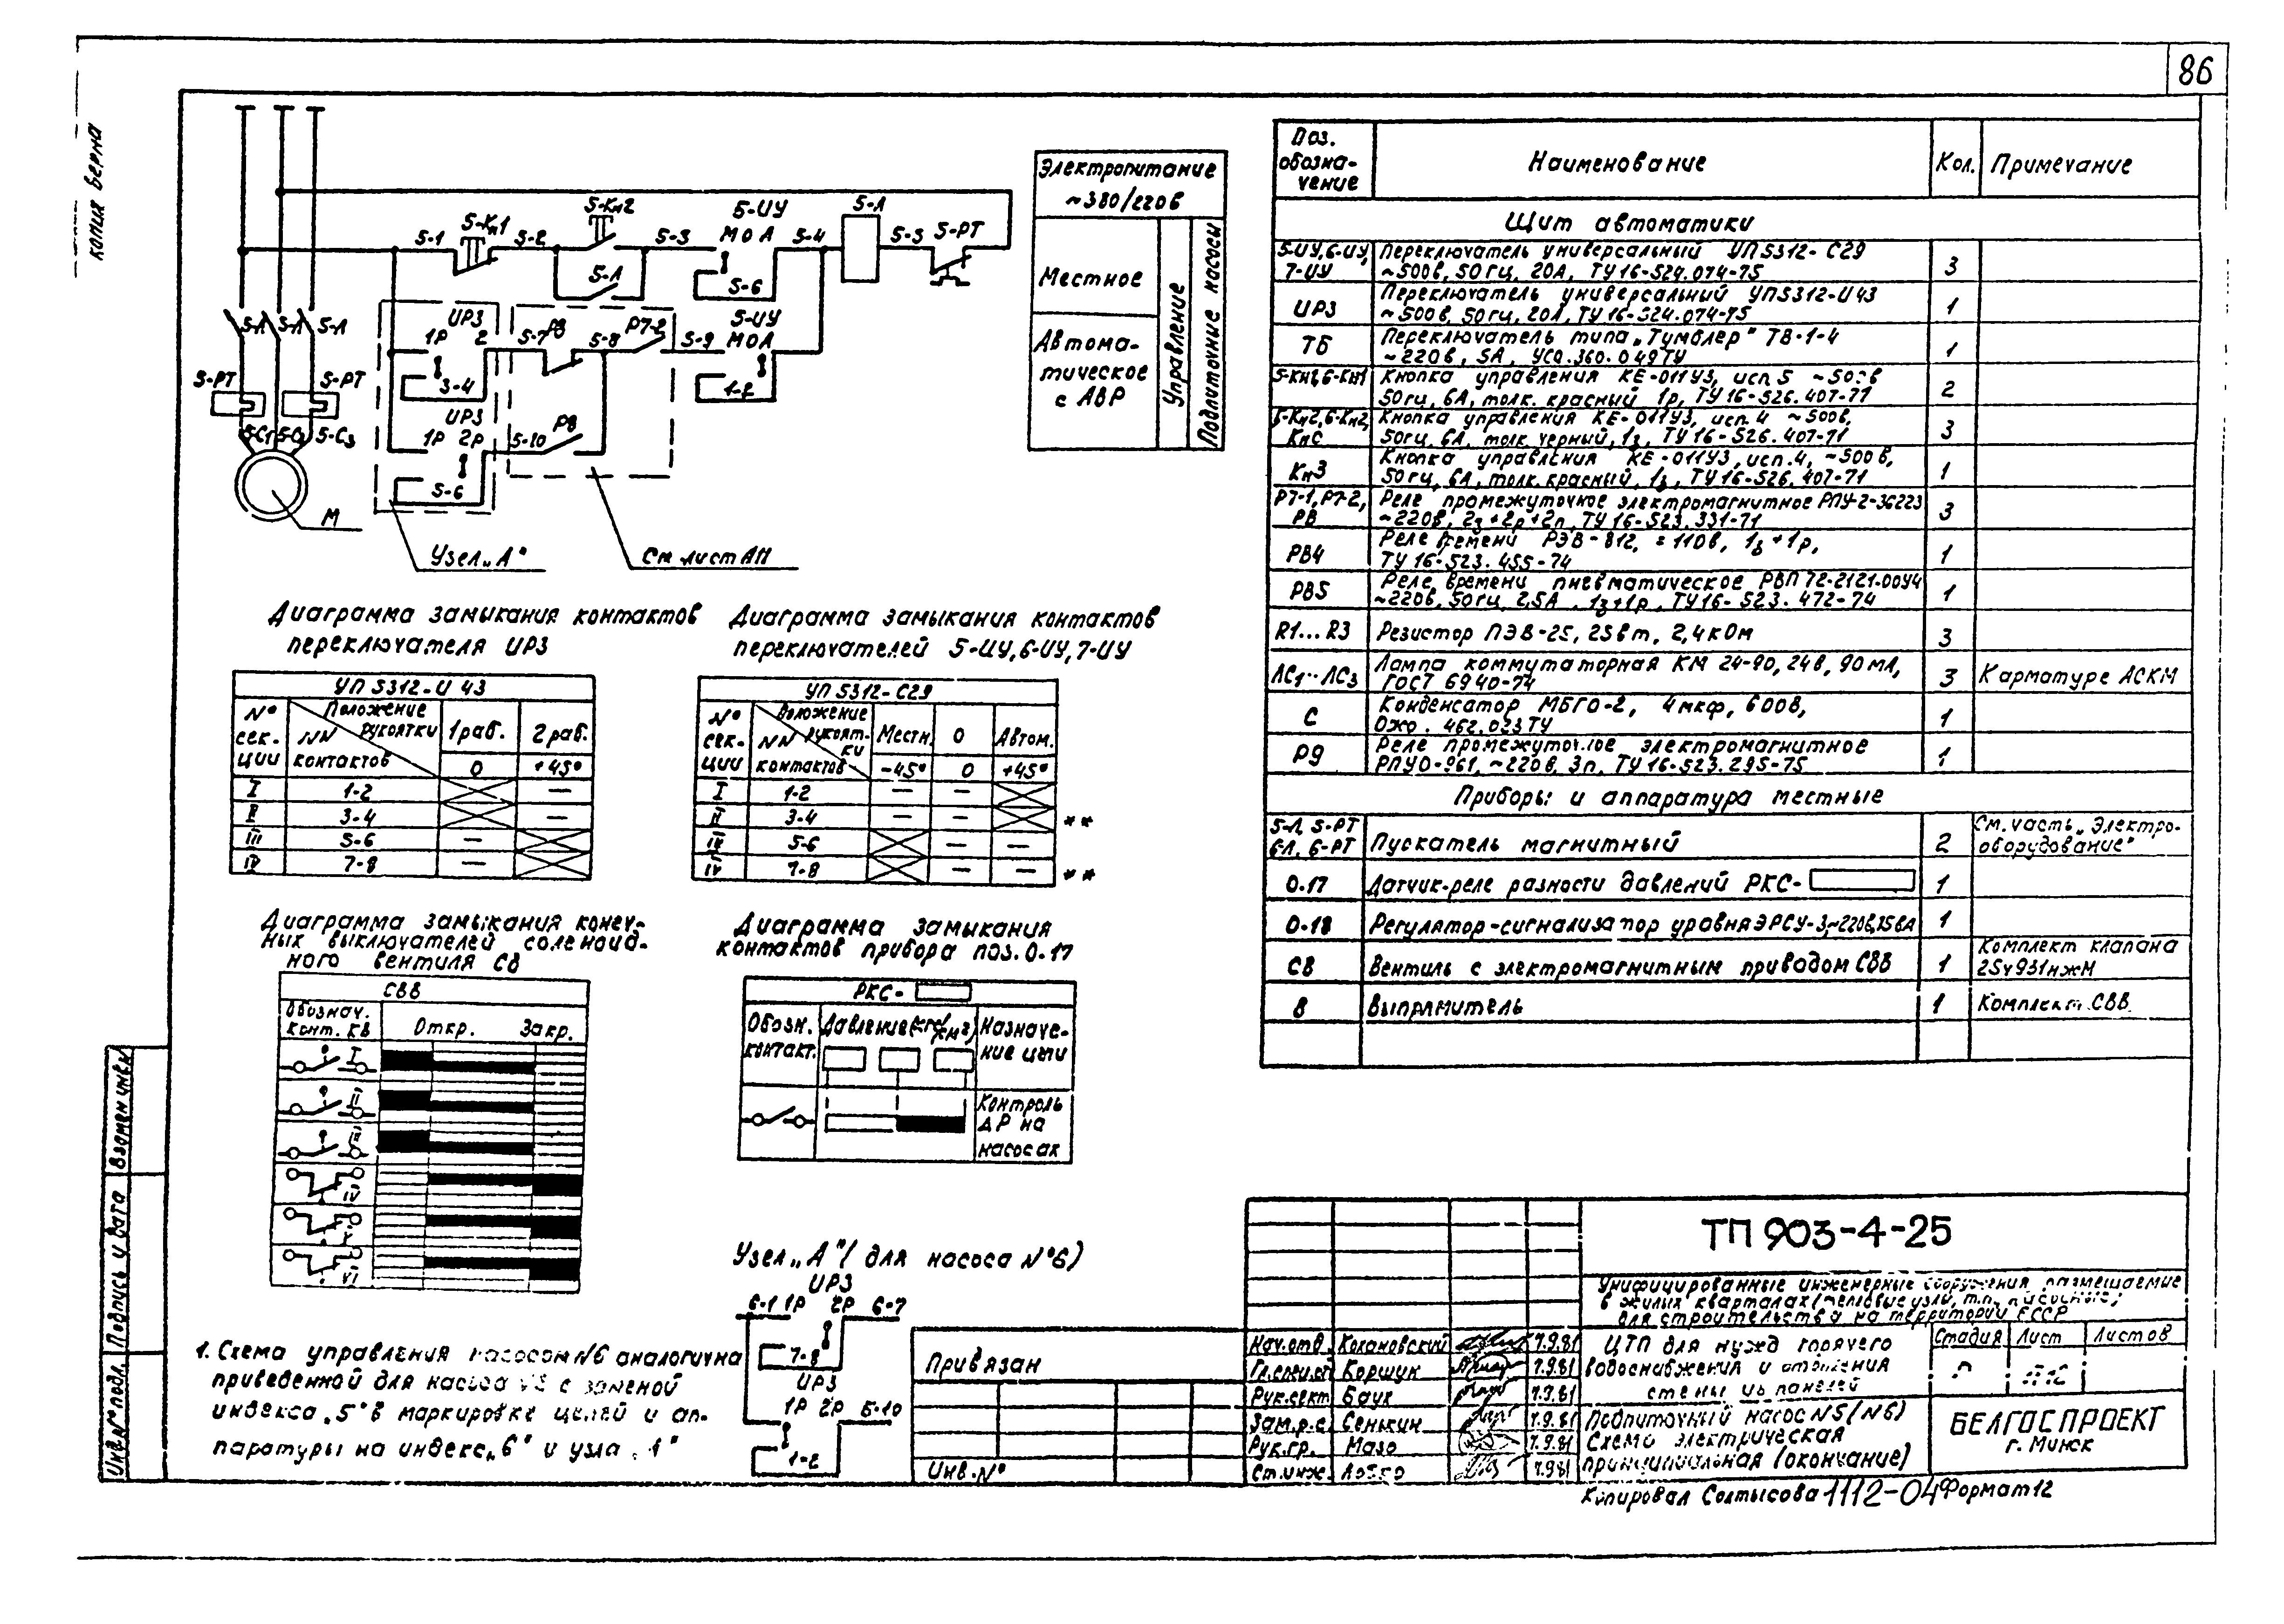 86
копия верна
5-Кн1
5-Кн2
5-ИУ
М О А
5-Л
5-1
5-2
5-3
5-4
5-5
5-РТ
5-Л
5-6
ИР3
1Р 2
5-7
РВ
5-8
Р7-2
5-9
5-ИУ
М О А
3-4
1-2
ИР3
1Р 2Р
5-10
РВ
5-6
5-Л
5-Л
5-Л
5-РТ
5-РТ
5-С1
5-С3
М
Узел „А"
См лист АП
Электропитание
~380/220в
Местное
Автома-
тическое
с АВР
Управление
Подпиточные насосы
Диаграмма замыкания контактов
переключателя ИР3
УП 5312-И 43
№ сек-ции
Положение рукоятки
NN контактов
1 раб.
2 раб.
0
+45°
I 1-2 —
II 3-4 —
III 5-6 —
IV 7-8 —
Диаграмма замыкания контактов
переключателей 5-ИУ, 6-ИУ, 7-ИУ
УП 5312-С29
№ сек-ции
Положение рукоят-ки
NN контактов
Местн. 0 Автом.
-45° 0 +45°
I 1-2 — —
II 3-4 — — **
5-6 — —
IV 7-8 — — **
Диаграмма замыкания конеч-
ных выключателей соленоид-
ного вентиля СВ
СВВ
Обознач.
конт. КВ
Откр.
Закр.
I
II
III
IV
VI
Диаграмма замыкания
контактов прибора поз. 0-17
РКС-
Обозн.
контакт.
Давление (кгс/см²)
Назначе-
ние цепи
Контроль
ΔР на
насосах
Узел „А" (для насоса №6)
ИР3
6-1 1Р 2Р 6-7
7-8
ИР3
1Р 2Р 6-10
1-2
1. Схема управления насосом №6 аналогична
приведенной для насоса №5 с заменой
индекса „5" в маркировке цепей и ап-
паратуры на индекс „6" и узла „А"
Поз.
обозна-
чение
Наименование
Кол.
Примечание
Щит автоматики
5-ИУ, 6-ИУ, Переключатель универсальный УП 5312-С29
7-ИУ ~500в, 50гц, 20А, ТУ 16-524.074-75 3
Переключатель универсальный УП5312-И43
ИР3 ~500в, 50гц, 20А, ТУ 16-524.074-75 1
ТБ Переключатель типа „Тумблер" ТВ-1-4
~220в, 5А, УСО.360.049ТУ 1
5-Кн1, 6-Кн1 Кнопка управления КЕ-011У3, исп 5 ~500в
50гц, 6А, толк. красный 1р, ТУ 16-526.407-71 2
5-Кн2, 6-Кн2, Кнопка управления КЕ-011У3, исп. 4 ~500в,
КнС 50гц, 6А, толк. черный, 1з, ТУ 16-526.407-71 3
Кн3 Кнопка управления КЕ-011У3, исп. 4, ~500в,
50гц, 6А, толк. красный, 1з, ТУ 16-526.407-71 1
Р7-1, Р7-2, Реле промежуточное электромагнитное РПУ-2-36223
РВ ~220в, 2з+2р+2п, ТУ 16-523.331-71 3
РВ4 Реле времени РЭВ-812, =110в, 1з+1р,
ТУ 16-523.455-74 1
РВ5 Реле времени пневматическое РВП 72-2121-00У4
~220в, 50гц, 2,5А, 1з+1р, ТУ16-523.472-74 1
R1...R3 Резистор ПЭВ-25, 25вт, 2,4 кОм 3
ЛС1...ЛС3 Лампа коммутаторная КМ 24-90, 24в, 90мА,
ГОСТ 6940-74 3 К арматуре АСКМ
С Конденсатор МБГО-2, 4мкф, 600в,
ОЖО.462.023ТУ 1
Р9 Реле промежуточное электромагнитное
РПУО-961, ~220в, 3п, ТУ 16-523.295-75 1
Приборы и аппаратура местные
5-Л, 5-РТ
6-Л, 6-РТ Пускатель магнитный 2 См. часть „Электро-
оборудование"
0-17 Датчик-реле разности давлений РКС- 1
0-18 Регулятор-сигнализатор уровня ЭРСУ-3, ~220в, 15ВА 1
СВ Вентиль с электромагнитным приводом СВВ 1 Комплект клапана
25ч931нжм
В Выпрямитель 1 Комплект СВВ
ТП 903-4-25
Унифицированные инженерные сооружения размещаемые
в жилых кварталах (тепловые узлы, т.п., насосные)
для строительства на территории БССР
ЦТП для нужд горячего
водоснабжения и отопления
стены из панелей
Стадия Лист Листов
Р
Подпиточный насос №5 (№6)
Схема электрическая
принципиальная (окончание)
БЕЛГОСПРОЕКТ
г. Минск
Нач. отд. Кохановский 7.9.81
Гл. спец. от Коршук 7.9.81
Рук. сект Баук 7.9.81
Зам. р.с. Сенькин 7.9.81
Рук. гр. Мазо 7.9.81
Ст. инж. 7.9.81
Привязан
Инв. №
Взамен инв. №
Подпись и дата
Инв. № подл.
Копировал Солтысова 1112-04 Формат 12